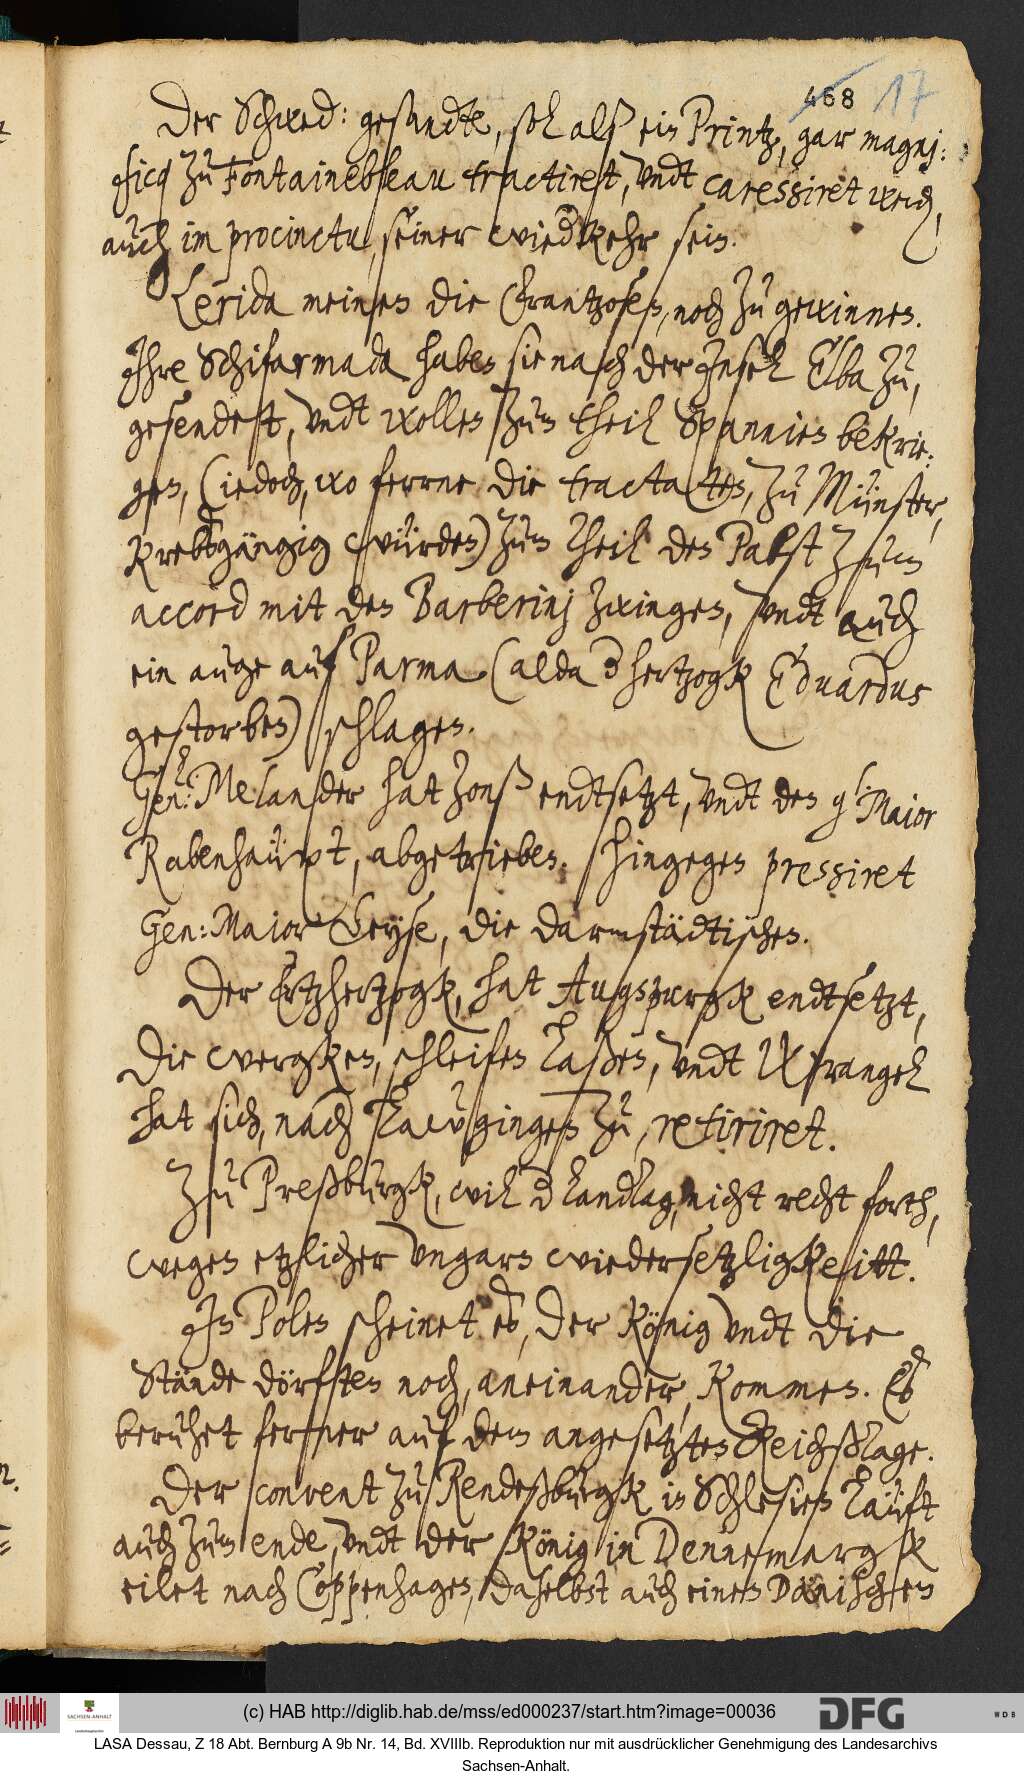 468 17
Der Schwed: gesandte, sol alß ein Printz, gar magni:
ficq zu Fontainebleau tractiret, undt caressiret werd,
auch im procinctu, seiner wiedkehr sein.
Lerida meinen die Frantzosen, noch zu gewinnen.
Ihre Schifarmada haben sie nach der Insel Elba zu,
gesendet, undt wollen zum theil Spannien bekrie:
gen, (iedoch, wo ferrne die tractaten, zu Münster,
Krebsgängig würden) zum theil den Pabst zum
accord mit den Barberinj zwingen, undt auch
ein auge auf Parma (alda d hertzogk Eduardus
gestorben) schlagen.
Gen: Melander hat Zonß endtsetzt, undt den g: Maior
Rabenhaüpt, abgetrieben. hingegen pressiret
Gen: Maior Geyse, die darmstädtischen.
Der Ertzhertzogk, hat Augspurgk endtsetzt,
die wergken, schleifen laßen, undt Wrangel
hat sich, nach Lawgingen zu, retiriret.
Zu Preßburgk, wil d landtag, nicht recht forth,
wegen etzlicher Ungarn wiedersetzligkeitt.
In Polen scheinet es, der König undt die
Stände dörften noch, aneinander, kommen. Es
beruhet ferner auf dem angesetzten Reichßtage.
Der convent zu Rendeßburgk in Schleßien läüft
auch zum ende, undt der König in Dennemargk
eilet nach Coppenhagen, daselbst auch einen Dänischen
(c) HAB http://diglib.hab.de/mss/ed000237/start.htm?image=00036
SACHSEN-ANHALT
DFG
WDB
LASA Dessau, Z 18 Abt. Bernburg A 9b Nr. 14, Bd. XVIIIb. Reproduktion nur mit ausdrücklicher Genehmigung des Landesarchivs
Sachsen-Anhalt.